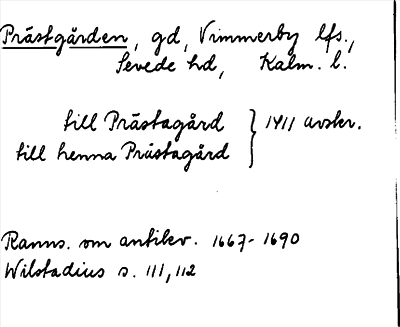 Prästgården, gd, Vimmerby lfs.,
Sevede hd, Kalm. l.
till Prästagård } 1411 avskr.
till henna Prästagård
Ranns. om antikv. 1667-1690
Wilstadius s. 111, 112